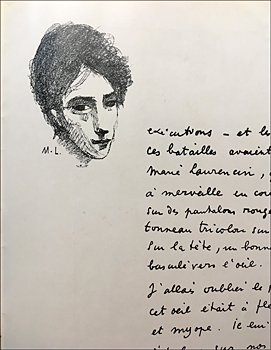 M.L.
exécutions - et le
ces batailles avaient
Marie Laurencin,
à merveille en cou
sur des pantalons rouge
tonneau tricolor sur
sur la tête, un bonn
basculé vers l'œil.
J'allais oublier le
cet œil était à fl
et myope. Je
sur nos